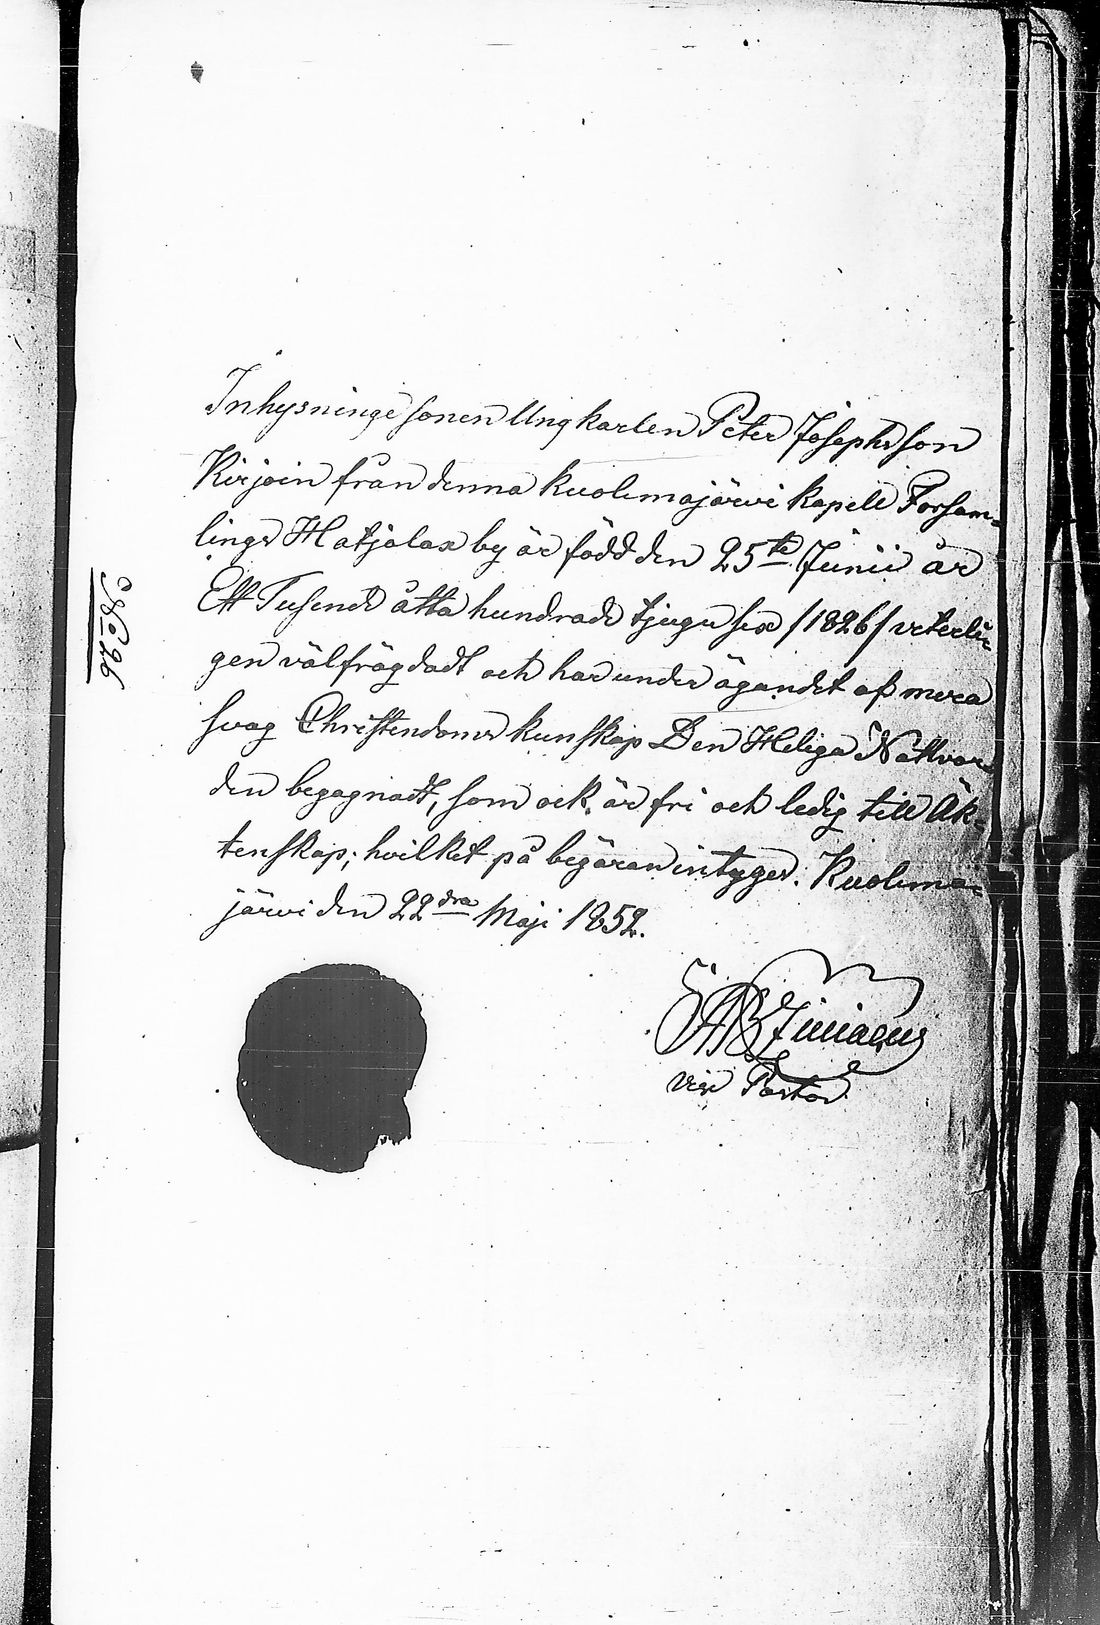 Inhysninge sonen Ungkarlen Peter Josephsson
Kirjoin från denna Kuolemajärvi Kapell Försam-
lings Hatjalax by är född den 25te Junii år
Ett Tusende åtta hundrade tjugu sex /1826/ veterli-
gen välfrägdadt och har under ägandet af mera
svag Christendoms kunskap Den Heliga Nattvar-
den begagnadt, som ock är fri och ledig till Äk-
tenskap; hvilket på begäran intygas. Kuolema-
järvi den 22dra Maji 1852.
vice Pastor.
No 26